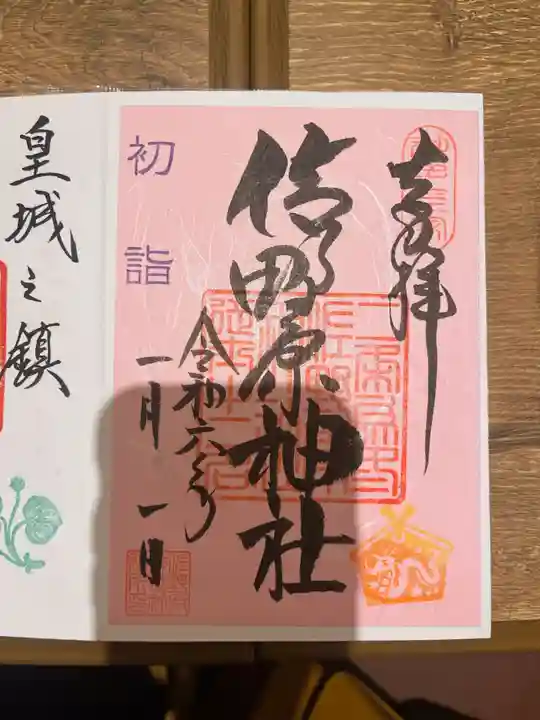 奉拝
信田原神社
令和六年
一月一日
初詣
皇城之鎮